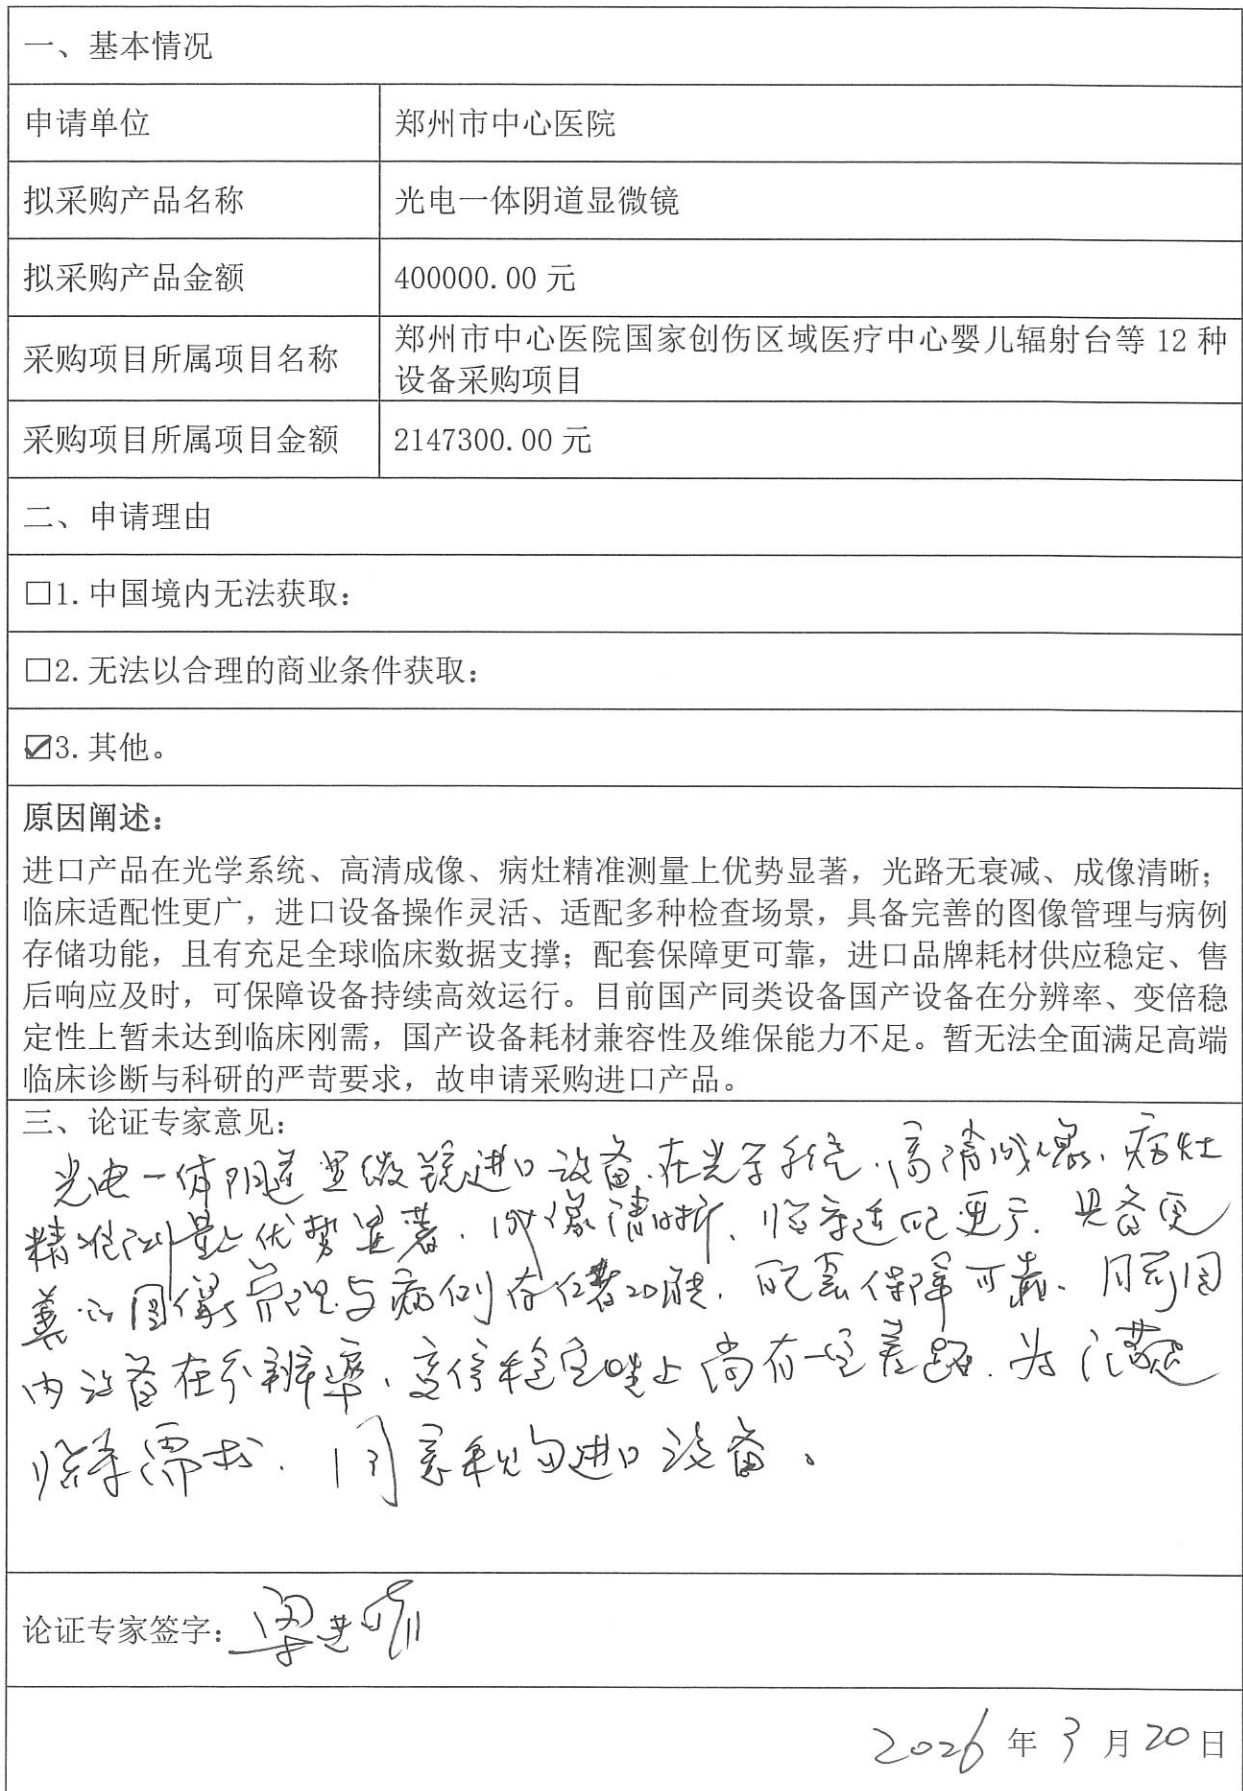 一、基本情况
申请单位 郑州市中心医院
拟采购产品名称 光电一体阴道显微镜
拟采购产品金额 400000.00 元
采购项目所属项目名称 郑州市中心医院国家创伤区域医疗中心婴儿辐射台等 12 种
设备采购项目
采购项目所属项目金额 2147300.00 元
二、申请理由
□1.中国境内无法获取：
□2.无法以合理的商业条件获取：
☑3.其他。
原因阐述：
进口产品在光学系统、高清成像、病灶精准测量上优势显著，光路无衰减、成像清晰；
临床适配性更广，进口设备操作灵活、适配多种检查场景，具备完善的图像管理与病例
存储功能，且有充足全球临床数据支撑；配套保障更可靠，进口品牌耗材供应稳定、售
后响应及时，可保障设备持续高效运行。目前国产同类设备国产设备在分辨率、变倍稳
定性上暂未达到临床刚需，国产设备耗材兼容性及维保能力不足。暂无法全面满足高端
临床诊断与科研的严苛要求，故申请采购进口产品。
三、论证专家意见：
光电一体阴道显微镜进口设备、在光学系统、高清成像、病灶
精准测量优势显著，成像清晰、临床适配更广、具备完
善的图像管理与病例存储功能，配套保障可靠、目前国
内设备在分辨率、变倍稳定性上尚有一定差距、为了满足
临床需求、同意采购进口设备。
论证专家签字：梁
2026 年 3 月 20 日